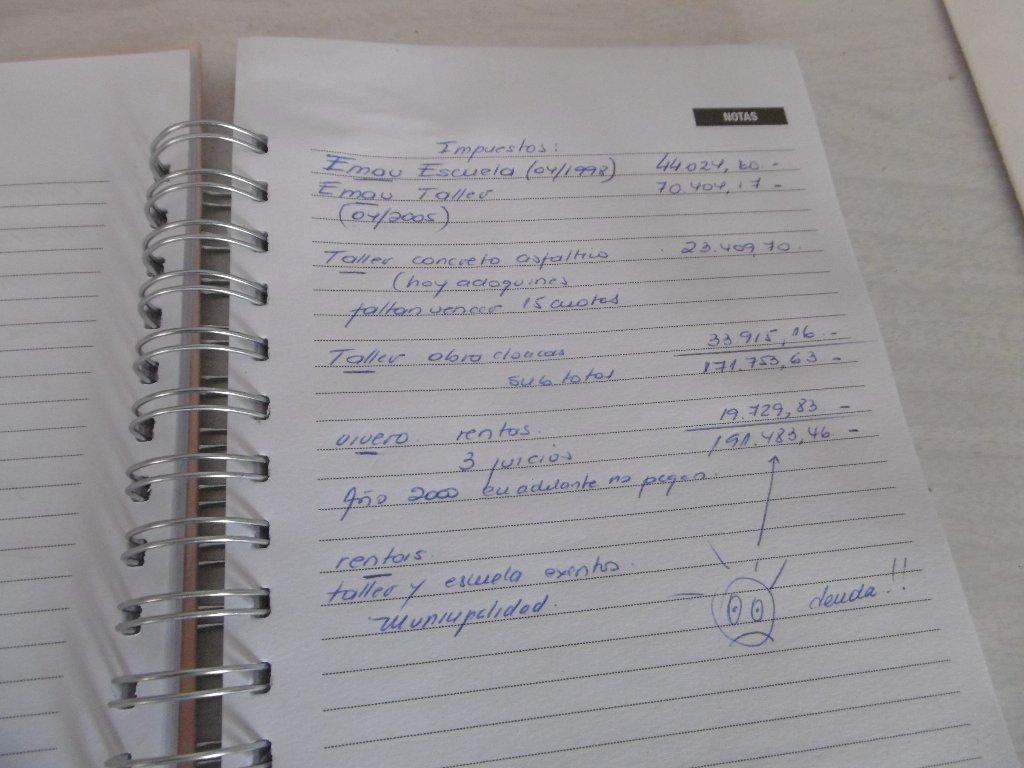 NOTAS
Impuestos:
Emau Escuela (04/1998) 44024,60.-
Emau Taller 70.404,17-
(04/2005)
Taller concreto asfaltico 23.409,70.
(hoy adoquines
faltan vencer 15 cuotas
Taller obra cloacas 33915,16-
sub totos 171.753,63-
vivero rentas. 19.729,83-
3 juicios 191.483,46-
Año 2000 en adelante no pagan.
rentas.
taller y escuela exentos.
Municipalidad. deuda!!